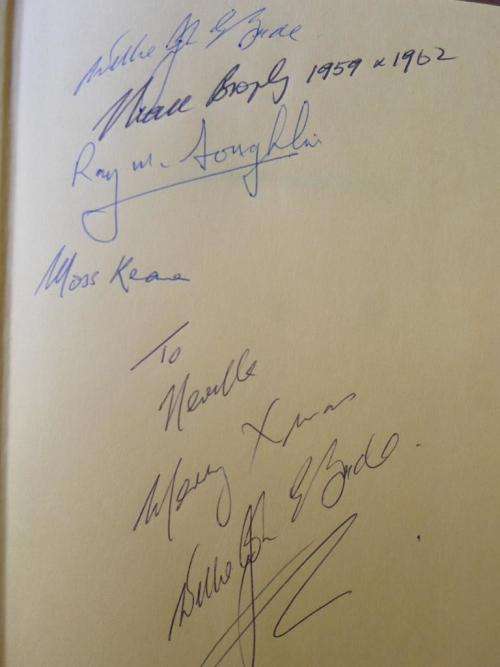 Willie John McBride
Niall Brophy 1959 & 1962
Ray McLoughlin
Moss Keane
To
Neville
Merry Xmas
Willie John McBride